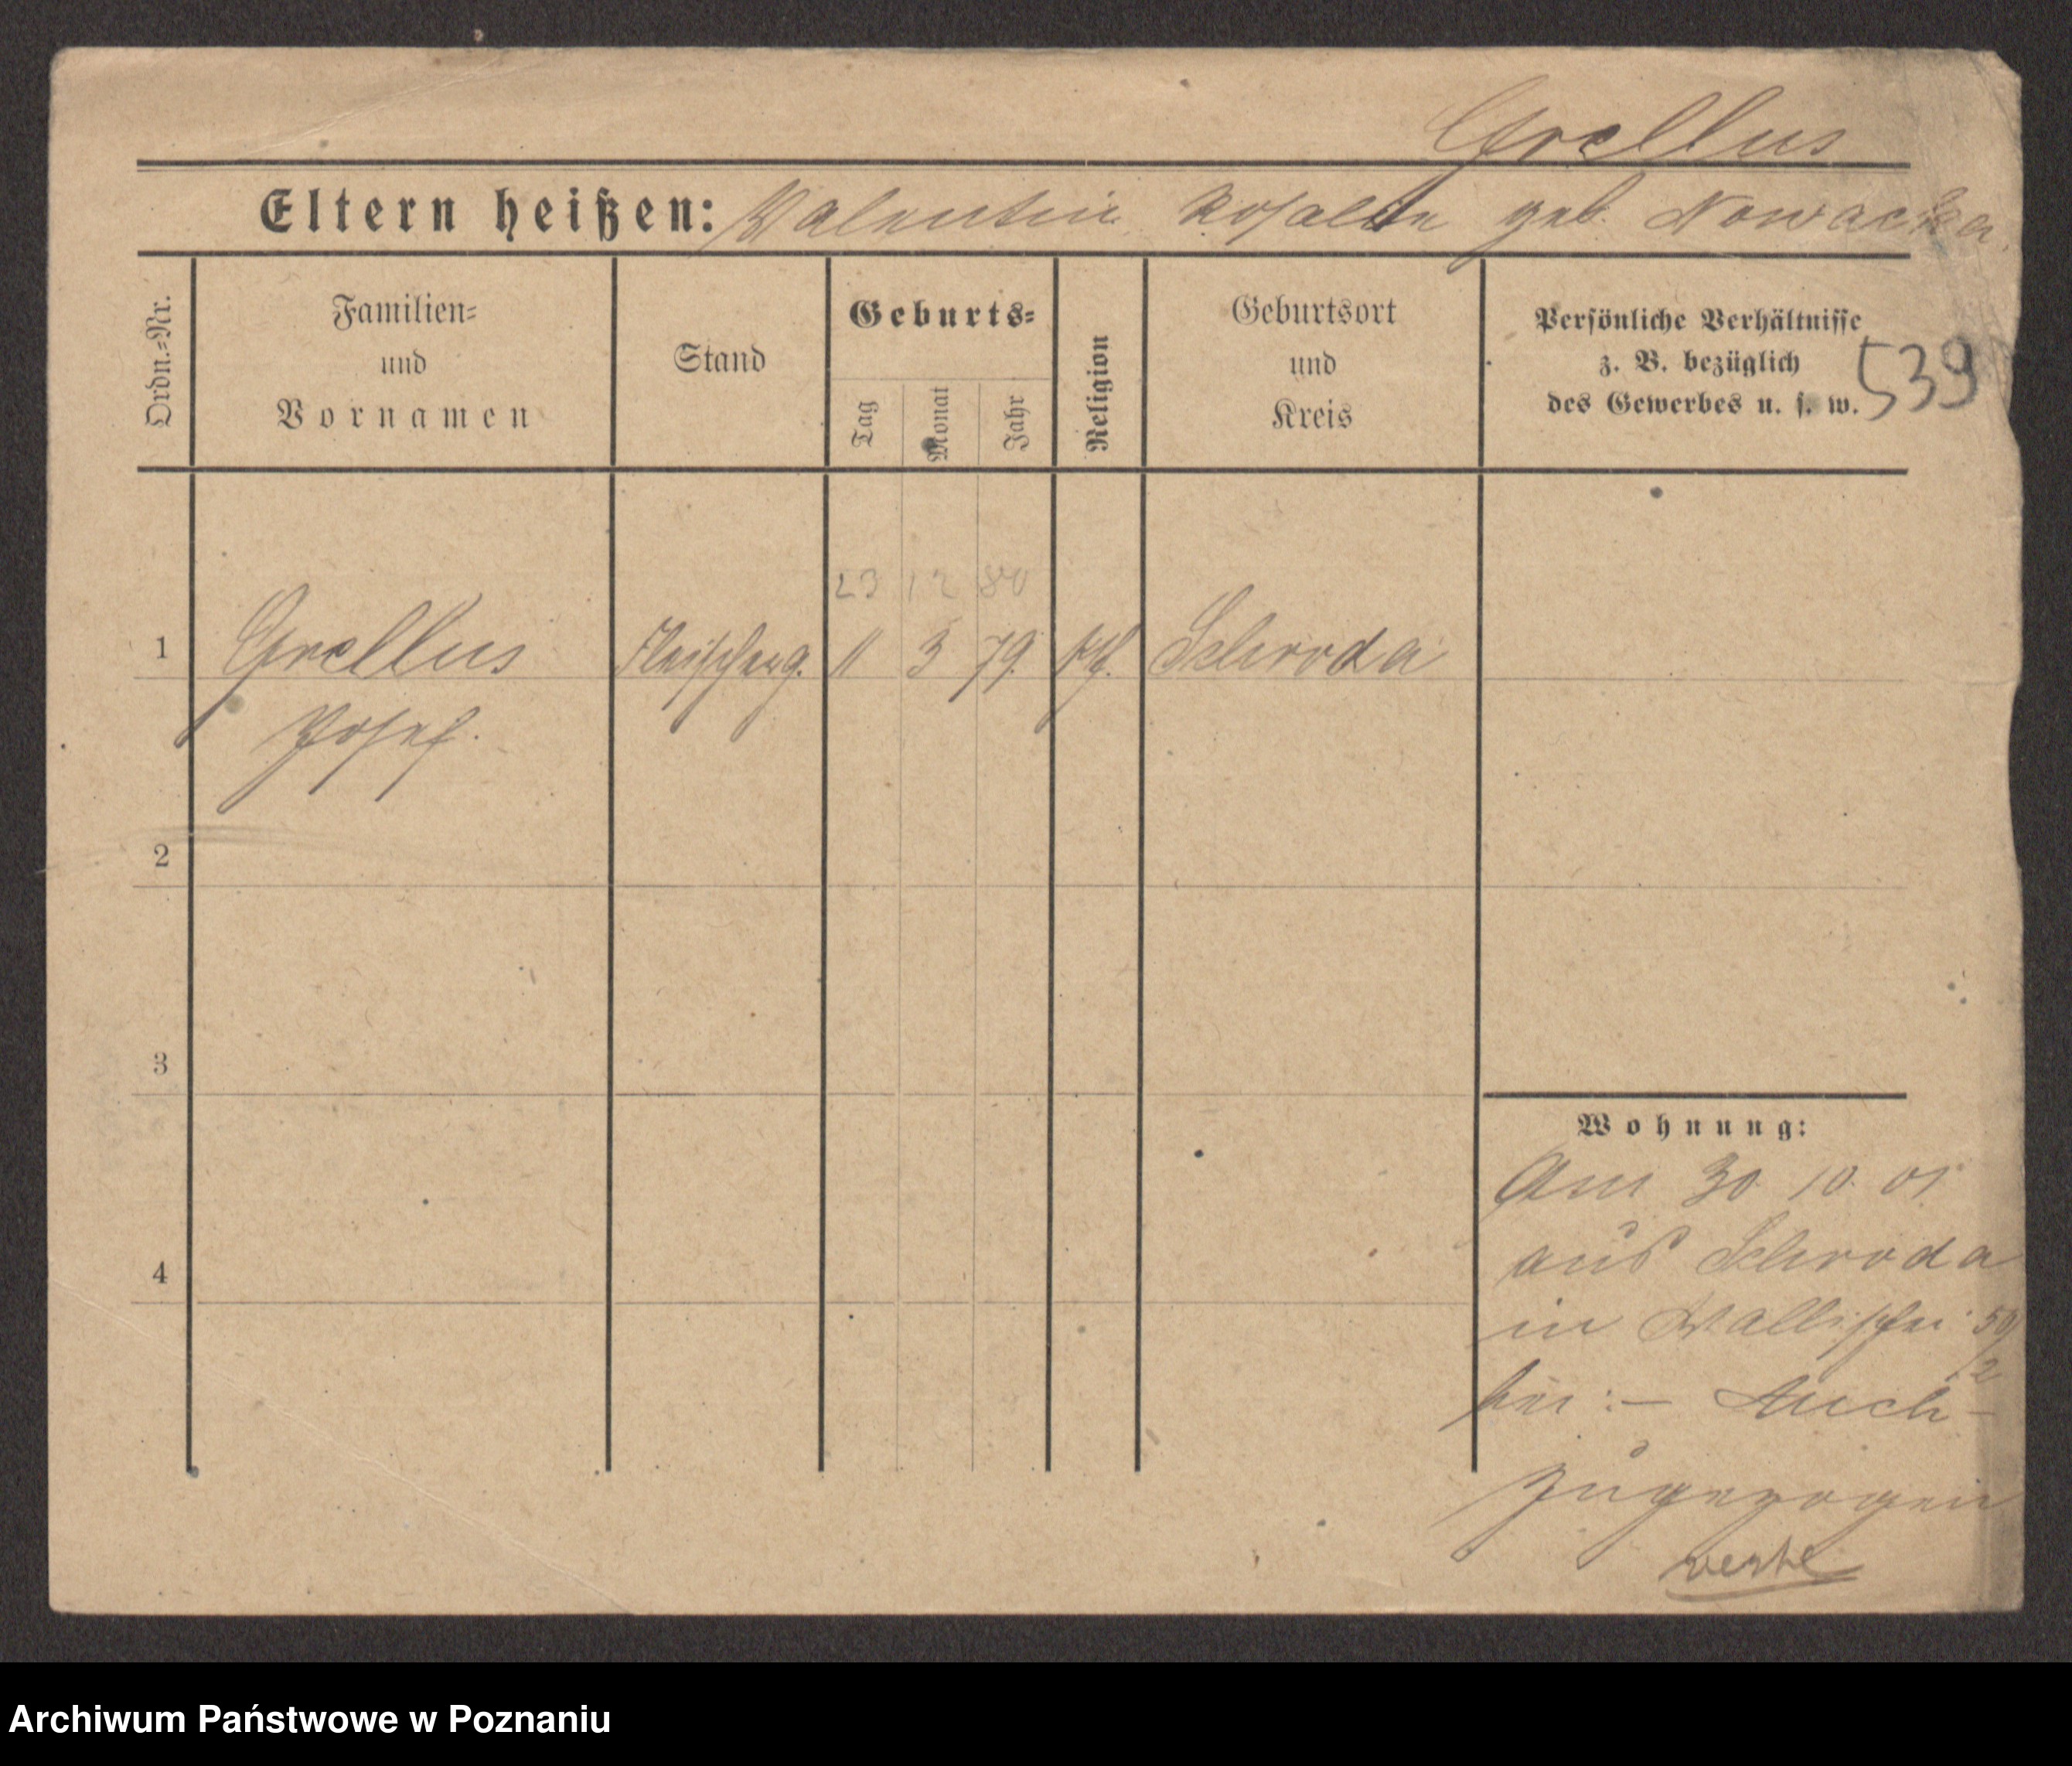 Grellus
Eltern heißen: Valentin Rosalie geb. Nowacka.
Ordn.-Nr.
Familien-
und
Vornamen
Stand
Geburts-
Tag
Monat
Jahr
Religion
Geburtsort
und
Kreis
Persönliche Verhältnisse
z. B. bezüglich
des Gewerbes u. s. w.
539
23 12 80
1 Grellus Fleischerg. 11 3 79. kth. Schroda
Josef.
2
3
4
Wohnung:
Am 30 10. 01.
aus Schroda
in Wallischei 50/
2
bei :-
zugezogen
Archiwum Państwowe w Poznaniu